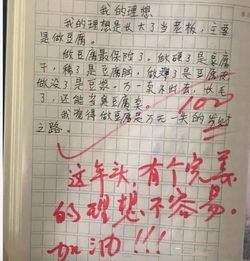 我的理想
我的理想是长大了当老板，主要
是做豆腐。
做豆腐最保险了。做硬了是豆腐
干，稀了是豆腐脑，做薄了是豆腐皮，
做没了是豆浆。万一卖不出去，放毛
了，还能当臭豆腐卖。
我觉得做豆腐是万无一失的发财
之路。
100
这年头，有个完美
的理想不容易。
加油!!!